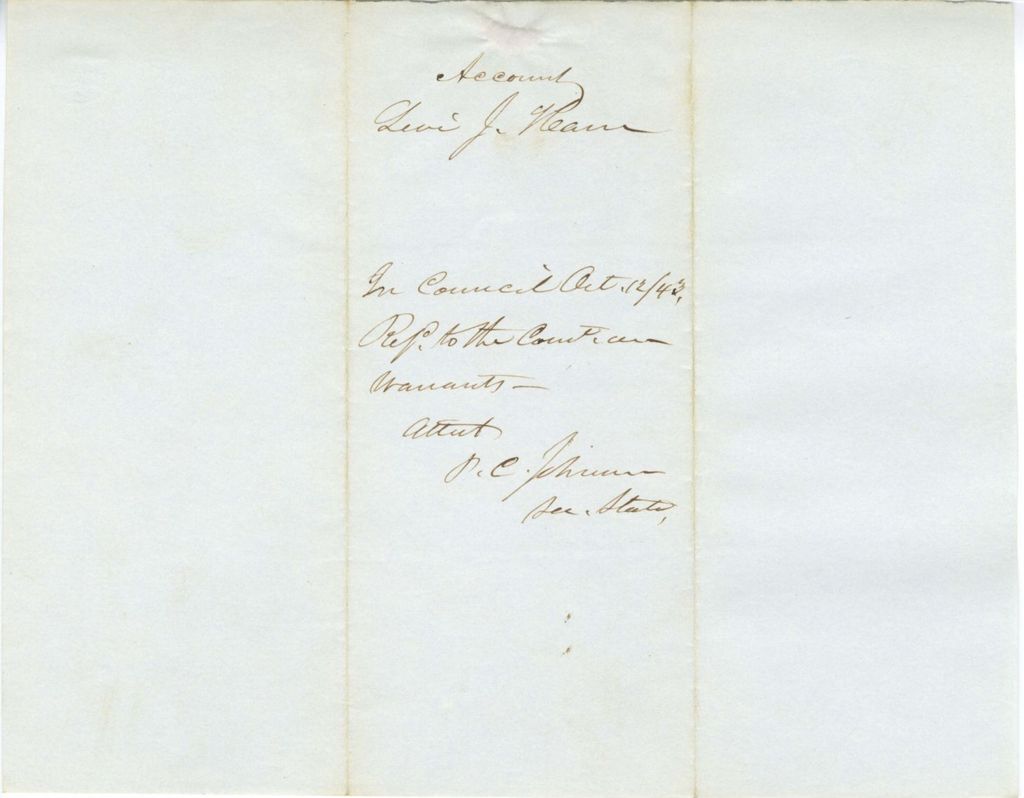 Account
Levi J. Ham
In Council Oct. 12/43,
Ref.d to the Comt. on
Warrants —
Attest
P. C. Johnson
Sec. State,